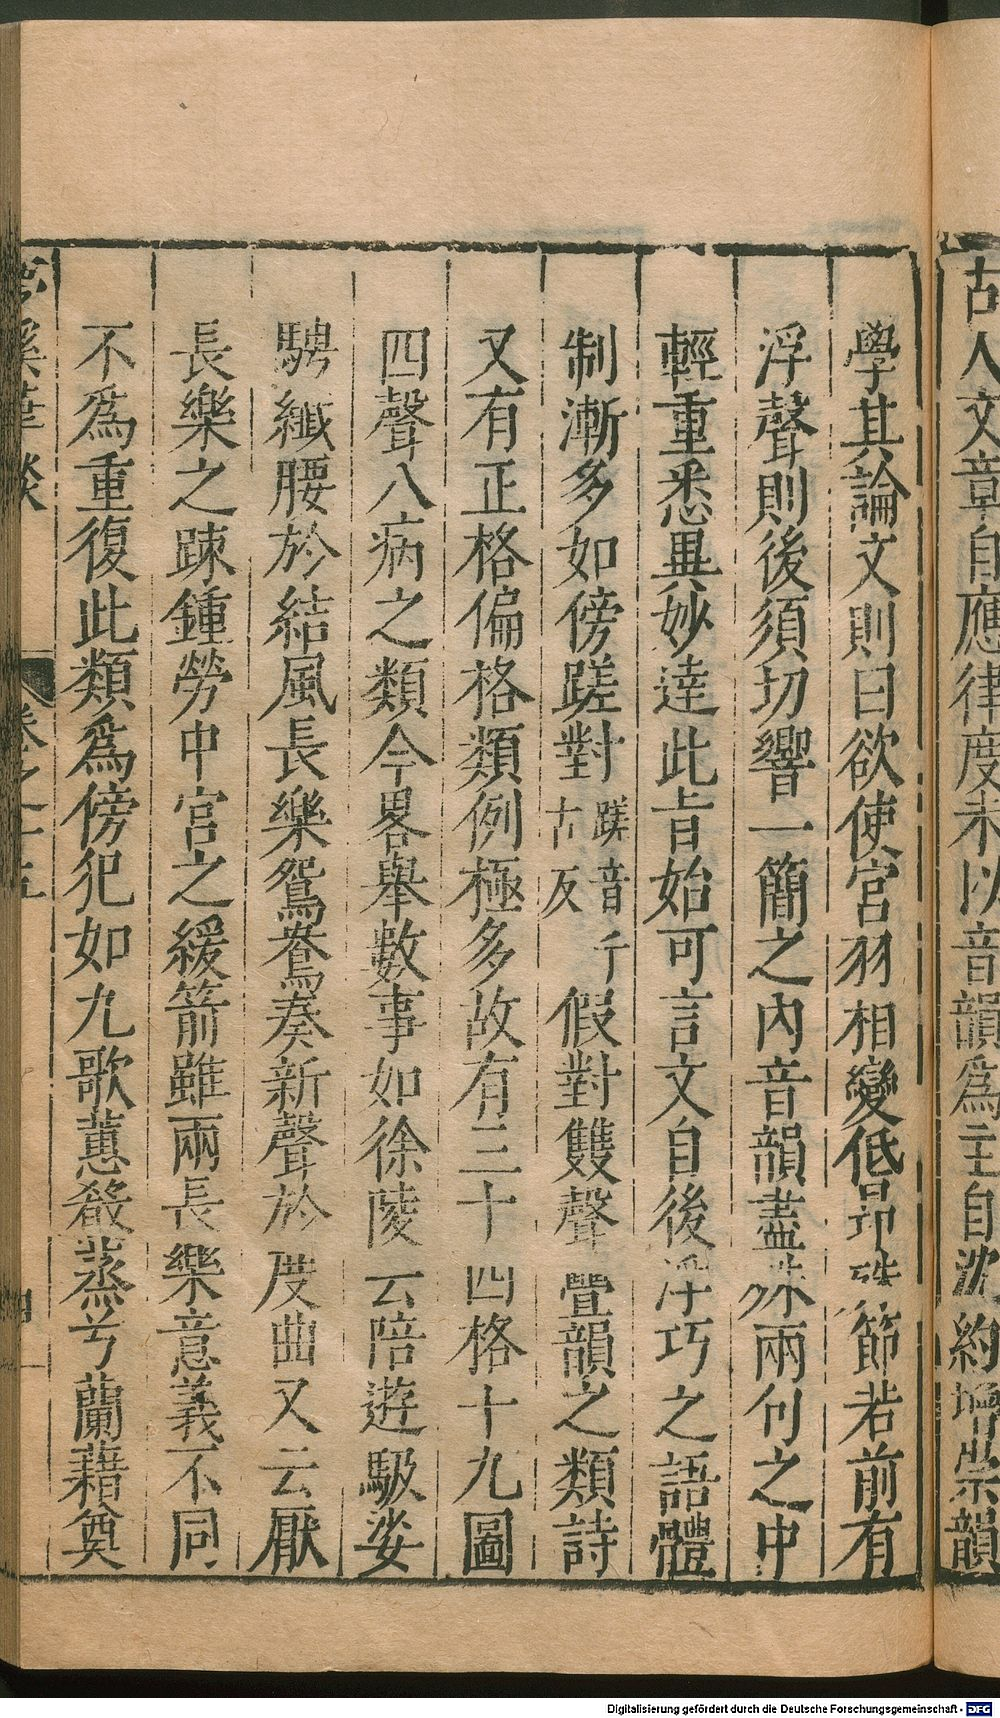 古人文章自應律度未以音韻為主自沈約增崇韻
學其論文則曰欲使宮羽相變低昻殊節若前有
浮聲則後須切響一簡之內音韻盡殊兩句之中
輕重悉異妙達此旨始可言文自後浮巧之語體
制漸多如傍蹉對蹉音千古反假對雙聲疊韻之類詩
又有正格偏格類例極多故有三十四格十九圖
四聲八病之類今畧舉數事如徐陵云陪遊馺娑
騁纖腰於結風長樂鴛鴦奏新聲於度曲又云厭
長樂之踈鍾勞中宮之緩箭雖兩長樂意義不同
不為重復此類為傍犯如九歌蕙殽蒸兮蘭藉奠
夢溪筆談
卷之十五
四
Digitalisierung gefördert durch die Deutsche Forschungsgemeinschaft - DFG